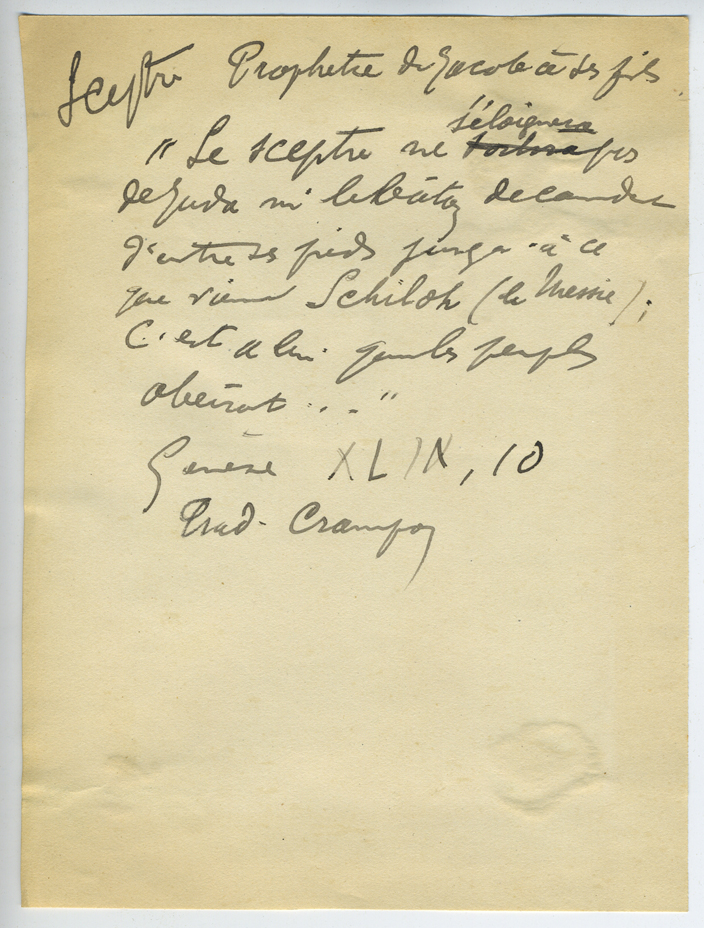 Sceptre Prophetie de Jacob à ses fils
s'éloignera
" Le sceptre ne pas
de Juda ni le bâton de commandement
d'entre ses pieds jusqu'à ce
que vienne Schiloh (le Messie) ;
C'est à lui que les peuples
obéiront ... "
Genèse XLIX, 10
Trad. Crampon